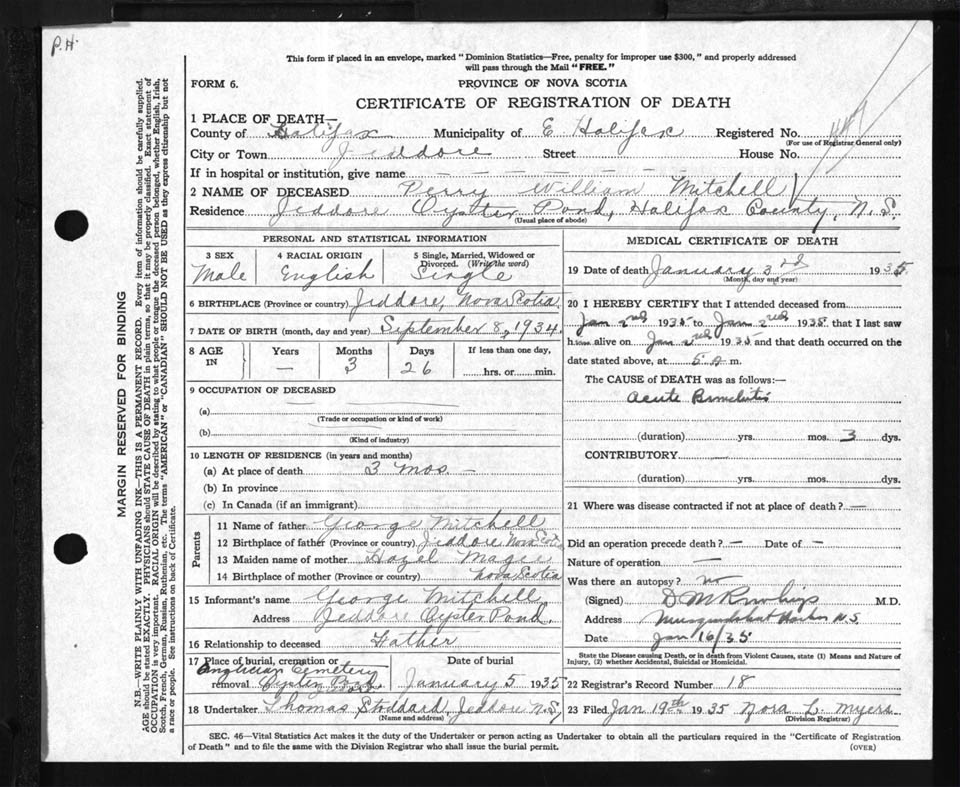 P.H.
This form if placed in an envelope, marked "Dominion Statistics—Free, penalty for improper use $300," and properly addressed
will pass through the Mail "FREE."
FORM 6.
PROVINCE OF NOVA SCOTIA
CERTIFICATE OF REGISTRATION OF DEATH
1 PLACE OF DEATH—
County of Halifax Municipality of E Halifax Registered No.
(For use of Registrar General only)
City or Town Jeddore Street House No.
If in hospital or institution, give name — — — — —
2 NAME OF DECEASED Perry William Mitchell
Residence Jeddore Oyster Pond, Halifax County, N.S.
(Usual place of abode)
PERSONAL AND STATISTICAL INFORMATION
3 SEX Male
4 RACIAL ORIGIN English
5 Single, Married, Widowed or Divorced. (Write the word) Single
6 BIRTHPLACE (Province or country) Jeddore, Nova Scotia
7 DATE OF BIRTH (month, day and year) September 8, 1934.
8 AGE IN Years — Months 3 Days 26 If less than one day, hrs. or min.
9 OCCUPATION OF DECEASED
(a) —
(Trade or occupation or kind of work)
(b)
(Kind of industry)
10 LENGTH OF RESIDENCE (in years and months)
(a) At place of death 3 mos —
(b) In province
(c) In Canada (if an immigrant)
Parents
11 Name of father George Mitchell
12 Birthplace of father (Province or country) Jeddore Nova Scotia
13 Maiden name of mother Hazel
14 Birthplace of mother (Province or country) Nova Scotia
15 Informant's name George Mitchell
Address Jeddore Oyster Pond.
16 Relationship to deceased Father
17 Place of burial, cremation or removal Anglican Cemetery Oyster Pond
Date of burial January 5 1935
18 Undertaker Thomas Stoddard, Jeddore N.S,
(Name and address)
MEDICAL CERTIFICATE OF DEATH
19 Date of death January 3rd 1935
(Month, day and year)
20 I HEREBY CERTIFY that I attended deceased from
Jan 2nd 1935 to Jan 2nd 1935 that I last saw
him alive on Jan 2nd 1935 and that death occurred on the
date stated above, at 5 A m.
The CAUSE of DEATH was as follows:—
Acute Bronchitis
(duration) yrs. mos. 3 dys.
CONTRIBUTORY —
(duration) yrs. mos. dys.
21 Where was disease contracted if not at place of death? —
Did an operation precede death? — Date of —
Nature of operation —
Was there an autopsy? no
(Signed) D M M.D.
Address Musquodoboit Harbor N S
Date Jan 16/35
State the Disease causing Death, or in death from Violent Causes, state (1) Means and Nature of
Injury, (2) whether Accidental, Suicidal or Homicidal.
22 Registrar's Record Number 18
23 Filed Jan 19th 1935 Nora L. Myers
(Division Registrar)
SEC. 46—Vital Statistics Act makes it the duty of the Undertaker or person acting as Undertaker to obtain all the particulars required in the "Certificate of Registration
of Death" and to file the same with the Division Registrar who shall issue the burial permit.
(OVER)
MARGIN RESERVED FOR BINDING
N.B.—WRITE PLAINLY WITH UNFADING INK—THIS IS A PERMANENT RECORD. Every item of information should be carefully supplied.
AGE should be stated EXACTLY. PHYSICIANS should STATE CAUSE OF DEATH in plain terms, so that it may be properly classified. Exact statement of
OCCUPATION is very important. RACIAL ORIGIN will be described by stating to what people or tongue the deceased person belonged, whether English, Irish,
Scotch, French, German, Russian, Ruthenian, etc. The terms "AMERICAN" or "CANADIAN" SHOULD NOT BE USED as they express citizenship but not
a race or people. See instructions on back of Certificate.